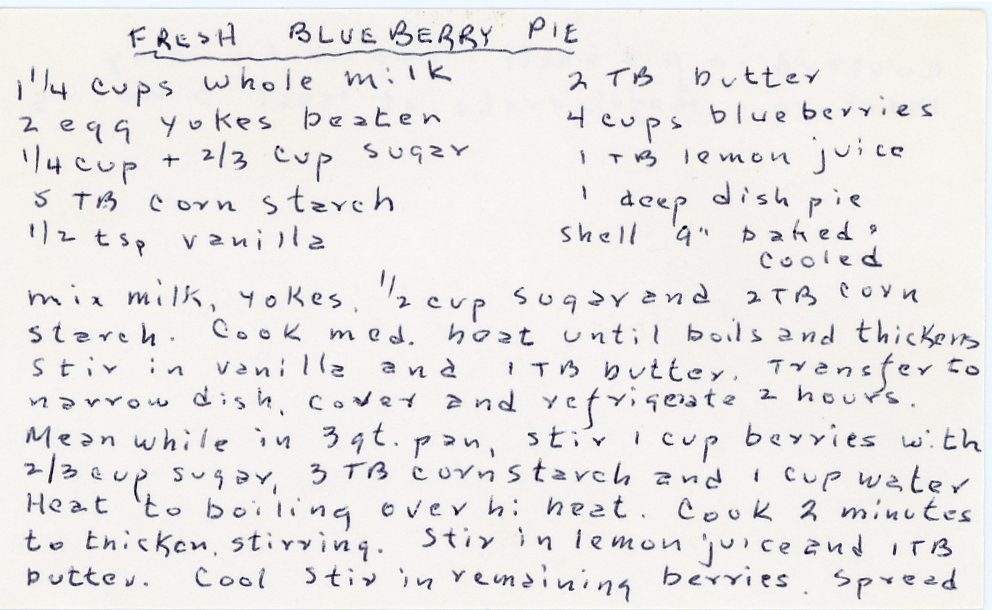 FRESH BLUEBERRY PIE
1 1/4 cups whole milk
2 egg yokes beaten
1/4 cup + 2/3 cup sugar
5 TB corn starch
1/2 tsp vanilla
2 TB butter
4 cups blueberries
1 TB lemon juice
1 deep dish pie
shell 9" baked &
cooled
mix milk, yokes, 1/2 cup sugar and 2 TB corn
starch. Cook med. heat until boils and thickens
Stir in vanilla and 1 TB butter. Transfer to
narrow dish, cover and refrigerate 2 hours.
Mean while in 3 qt. pan, stir 1 cup berries with
2/3 cup sugar, 3 TB cornstarch and 1 cup water
Heat to boiling over hi heat. Cook 2 minutes
to thicken, stirring. Stir in lemon juice and 1 TB
butter. Cool Stir in remaining berries. Spread